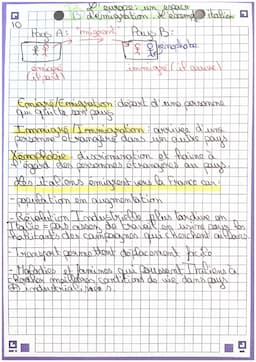 L'europe : un espace
d'émigration - l'exemple italien
10
Pays A: "migrant" Pays B:
xénophobe
émigre immigre (il arrive)
(il part)
Emigré/Emigration : départ d'une personne
qui quitte son pays
Immigré/Immigration : arrivée d'une
personne étrangère dans un autre pays
Xénophobie : discrimination et haine à
l'égard des personnes étrangères au pays.
Les italiens émigrent vers la France car :
- population en augmentation
- Révolution Industrielle plus tardive en
Italie = pas assez de travail en usine pour les
habitants des campagnes qui cherchent ailleurs
- Transport permettent déplacement
- Maladies et famines qui poussent Italiens à
chercher meilleures conditions de vie dans pays
industrialisés.